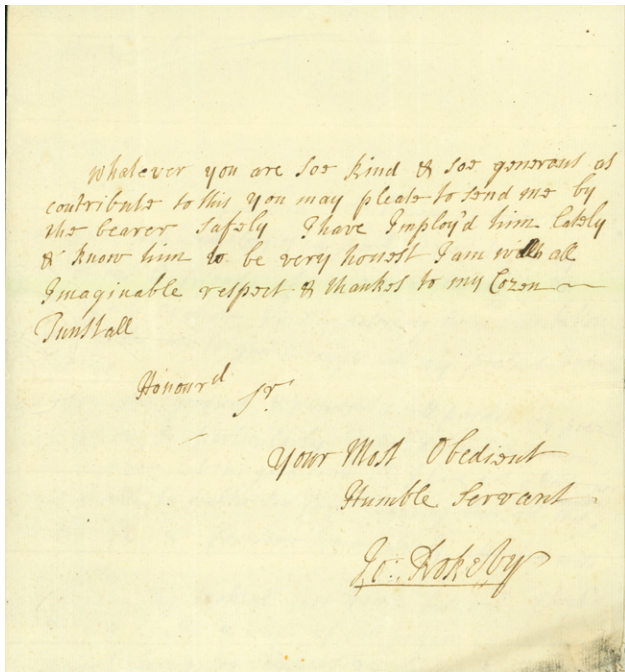 Whatever you are soe kind & soe generous as
contribute to this you may please to send me by
the bearer safely I have Imploy'd him lately
& know him to be very honest I am with all
Imaginable respect & thankes to my Cozen
Tunstall
Honour'd Sr
Your Most Obedient
Humble Servant
Jo: Rokesby